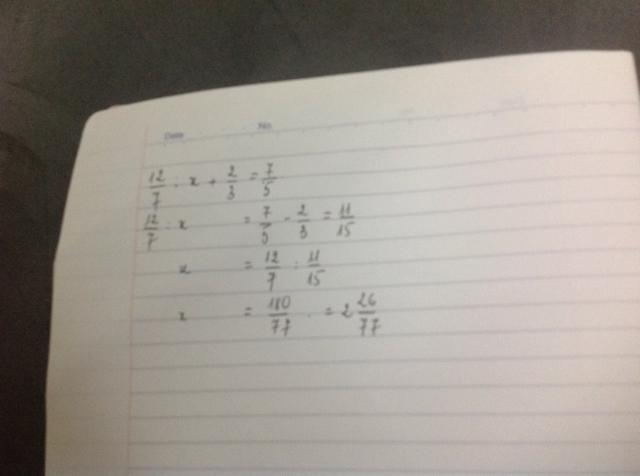 Date No.
12/7 : x + 2/3 = 7/5
12/7 : x = 7/5 - 2/3 = 11/15
x = 12/7 : 11/15
x = 180/77 = 2 26/77